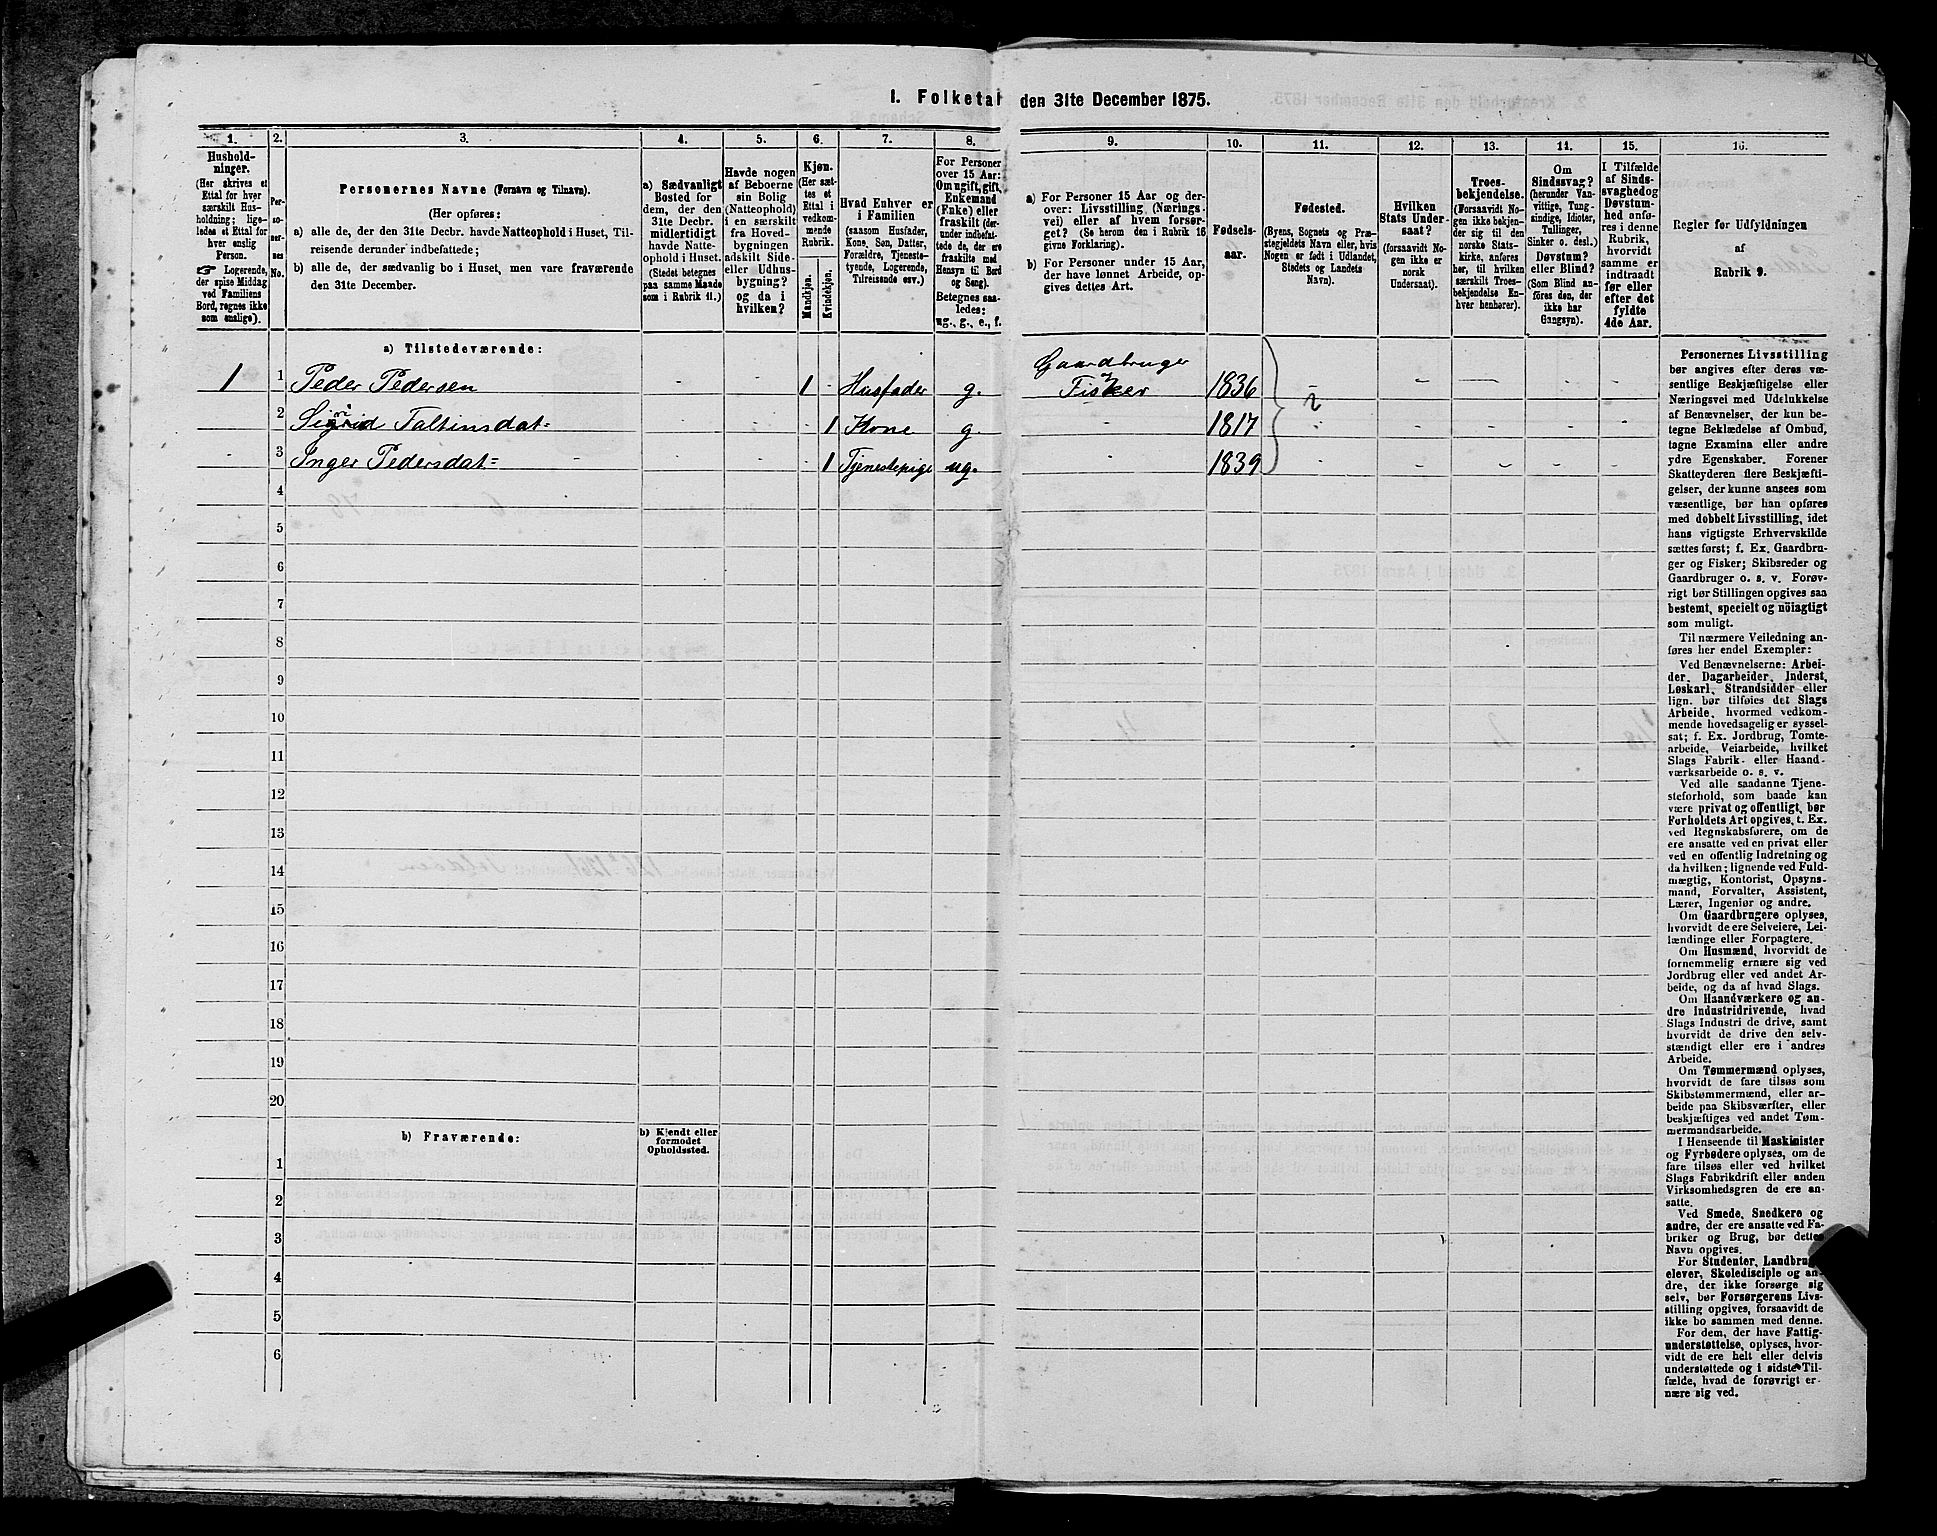 I. Folketal den 31te December 1875.
1. 2. 3. 4. 5. 6. 7. 8. 9. 10. 11. 12. 13. 14. 15. 16.
Hushold-
ninger.
(Her skrives et
Ettal for hver
særskilt Hus-
holdning; lige-
ledes et Ettal for
hver enslig
Person.
☞ Logerende,
der spise Middag
ved Familiens
Bord, regnes ikke
som enslige).
Per-
so-
ner-
nes
No.
Personernes Navne (Fornavn og Tilnavn).
(Her opføres:
a) alle de, der den 31te Decbr. havde Natteophold i Huset, Til-
reisende derunder indbefattede;
b) alle de, der sædvanlig bo i Huset, men vare fraværende
den 31te December.
a) Sædvanligt
Bosted for
dem, der den
31te Decbr.
midlertidigt
havde Natte-
ophold i Huset.
(Stedet betegnes
paa samme Maade
som i Rubrik 11.)
Havde nogen
af Beboerne
sin Bolig
(Natteophold)
i en særskilt
fra Hoved-
bygningen
adskilt Side-
eller Udhus-
bygning?
og da i
hvilken?
Kjøn.
(Her sæt-
tes et
Ettal i
vedkom-
mende
Rubrik.
Mandkjøn.
Kvindekjøn.
Hvad Enhver er
i Familien
(saasom Husfader,
Kone, Søn, Datter,
Forældre, Tjeneste-
tyende, Logerende,
Tilreisende osv.)
For Personer
over 15 Aar:
Om ugift, gift,
Enkemand
(Enke) eller
fraskilt (der-
under indbefat-
tede de, der ere
fraskilte med
Hensyn til Bord
og Seng).
Betegnes saa-
ledes:
ug., g., e., f.
a) For Personer 15 Aar og der-
over: Livsstilling (Nærings-
vei) eller af hvem forsør-
get? (Se herom den i Rubrik 16
givne Forklaring).
b) For Personer under 15 Aar,
der have lønnet Arbeide, op-
gives dettes Art.
Fødsels-
aar.
Fødested.
(Byens, Sognets og Præ-
stegjeldets Navn eller, hvis
Nogen er født i Udlandet,
Stedets og Landets
Navn).
Hvilken
Stats Under-
saat?
(forsaavidt No-
gen ikke er
norsk
Undersaat).
Troes-
bekjendelse.
(Forsaavidt No-
gen ikke bekjen-
der sig til den
norske Stats-
kirke, anføres
her, til hvilken
særskilt Troes-
bekjendelse En-
hver henhører).
Om
Sindssvag?
(herunder Van-
vittige, Tung-
sindige, Idioter,
Tullinger,
Sinker o. desl.)
Døvstum?
eller Blind?
(Som Blind an-
føres den, der
ikke har
Gangsyn).
I Tilfælde
af Sinds-
svaghed og
Døvstum-
hed anfø-
res i denne
Rubrik,
hvorvidt
samme er
indtraadt
før eller
efter det
fyldte
4de Aar.
Regler for Udfyldningen
af
Rubrik 9.
a) Tilstedeværende:
1 1 Peder Pedersen - - 1 - Husfader g. Gaardbruger
Fisker 1836 - - - - -
2 Sigrid Taltinsdat= - - - 1 Kone g. - 1817 - - - - -
- 3 Inger Pedersdat= - - - 1 Tjenestepige ug. - 1839 - - - - -
4
5
6
7
8
9
10
11
12
13
14
15
16
17
18
19
20
b) Fraværende:
b) Kjendt eller
formodet
Opholdssted.
1
2
3
4
5
6
Personernes Livsstilling
bør angives efter deres væ-
sentlige Beskjæftigelse eller
Næringsvei med Udelukkelse
af Benævnelser, der kun be-
tegne Beklædelse af Ombud,
tagne Examina eller andre
ydre Egenskaber. Forener
Skatteyderen flere Beskjæfti-
gelser, der kunne ansees som
væsentlige, bør han opføres
med dobbelt Livsstilling, idet
hans vigtigste Erhvervskilde
sættes først; f. Ex. Gaardbru-
ger og Fisker; Skibsreder og
Gaardbruger o. s. v. Forøv-
rigt bør Stillingen opgives saa
bestemt, specielt og nöiagtigt
som muligt.
Til nærmere Veiledning an-
føres her endel Exempler:
Ved Benævnelserne: Arbei-
der, Dagarbeider, Inderst,
Løskarl, Strandsidder eller
lign. bør tilføies det Slags
Arbeide, hvormed vedkom-
mende hovedsagelig er syssel-
sat; f. Ex. Jordbrug, Tomte-
arbeide, Veiarbeide, hvilket
Slags Fabrik- eller Haand-
værksarbeide o. s. v.
Ved alle saadanne Tjene-
steforhold, som baade kan
være privat og offentligt, bør
Forholdets Art opgives, t. Ex.
ved Regnskabsførere, om de
ere ansatte ved en privat eller
ved en offentlig Indretning og
da hvilken; lignende ved Fuld-
mægtig, Kontorist, Opsyns-
mand, Forvalter, Assistent,
Lærer, Ingeniør og andre.
Om Gaardbrugere oplyses,
hvorvidt de ere Selveiere, Lei-
lændinge eller Forpagtere.
Om Husmænd, hvorvidt de
fornemmelig ernære sig ved
Jordbrug eller ved andet Ar-
beide, og da af hvad Slags.
Om Haandværkere og an-
dre Industridrivende, hvad
Slags Industri de drive, samt
hvorvidt de drive den selv-
stændigt eller ere i andres
Arbeide.
Om Tømmermænd oplyses,
hvorvidt de fare tilsøs som
Skibstømmermænd, eller ar-
beide paa Skibsværfter, eller
beskjæftiges ved andet Tøm-
mermandsarbeide.
I Henseende til Maskinister
og Fyrbødere oplyses, om de
fare tilsøs eller ved hvilket
Slags Fabrikdrift eller anden
Virksomhedsgren de ere an-
satte.
Ved Smede, Snedkere og
andre, der ere ansatte ved Fa-
briker og Brug, bør dettes
Navn opgives.
For Studenter, Landbrugs-
elever, Skoledisciple og an-
dre, der ikke forsørge sig
selv, bør Forsørgerens Livs-
stilling opgives, forsaavidt de
ikke bo sammen med denne.
For dem, der have Fattig-
understøttelse, oplyses, hvor-
vidt de ere helt eller delvis
understøttede og i sidste Til-
fælde, hvad de forøvrigt er-
nære sig ved.